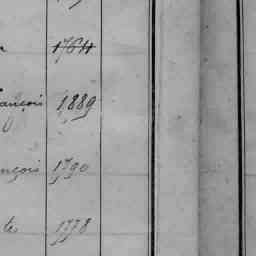 1764
ançois 1889
nçois 1790
te 1778